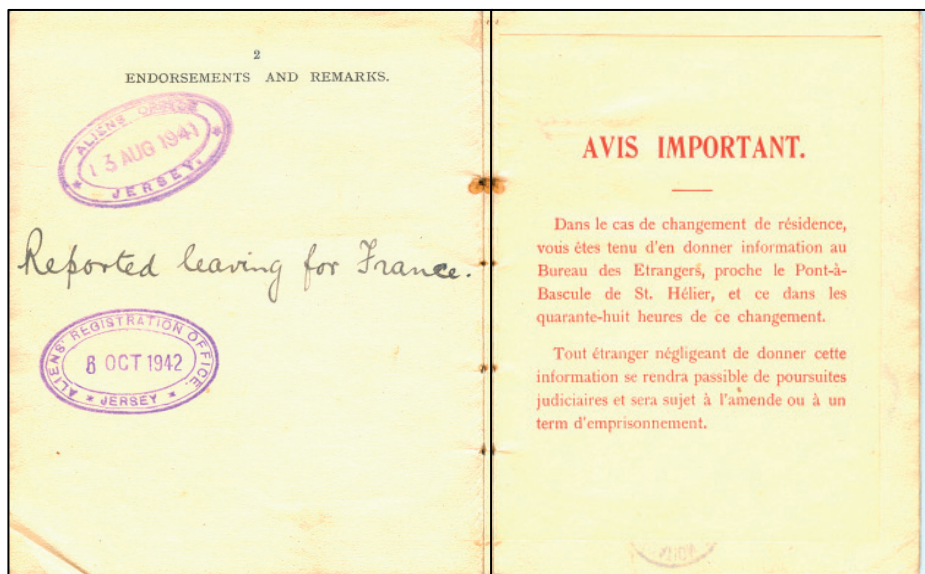 2
ENDORSEMENTS AND REMARKS.
ALIENS OFFICE
13 AUG 1941
* JERSEY. *
Reported leaving for France.
ALIENS' REGISTRATION OFFICE.
8 OCT 1942
* JERSEY *
AVIS IMPORTANT.
Dans le cas de changement de résidence,
vous êtes tenu d'en donner information au
Bureau des Etrangers, proche le Pont-à-
Bascule de St. Hélier, et ce dans les
quarante-huit heures de ce changement.
Tout étranger négligeant de donner cette
information se rendra passible de poursuites
judiciaires et sera sujet à l'amende ou à un
term d'emprisonnement.